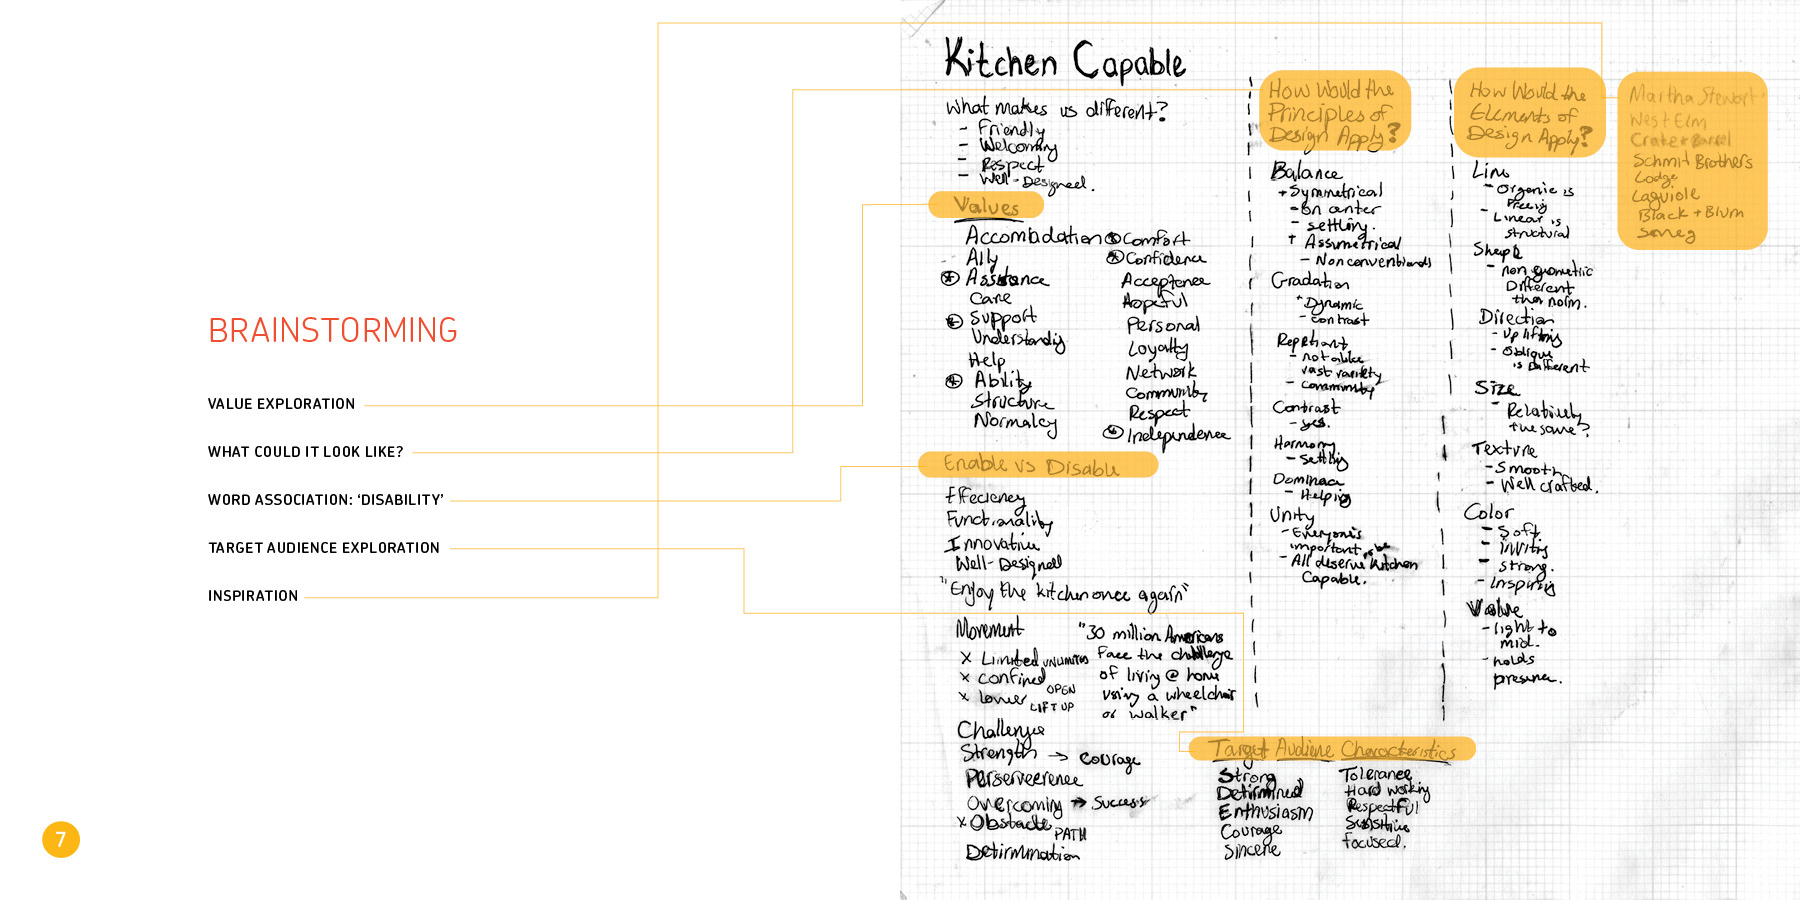 BRAINSTORMING
VALUE EXPLORATION
WHAT COULD IT LOOK LIKE?
WORD ASSOCIATION: ‘DISABILITY’
TARGET AUDIENCE EXPLORATION
INSPIRATION
7
Kitchen Capable
What makes us different?
- Friendly
- Welcoming
- Respect
- Well-Designed.
Values
Accomodation
Ally
Assistance
Care
Support
Understandig
Help
Ability
Structure
Normalcy
Comfort
Confidence
Acceptence
Hopeful
Personal
Loyalty
Network
Community
Respect
Independence
Enable vs Disable
Effeciency
Functionality
Innovative
Well-Designed
"Enjoy the kitchen once again"
Movement
x Limited UNLIMITED
x confined OPEN
x lower LIFT UP
"30 million Americans
face the challenge
of living @ home
using a wheelchair
or walker"
Challenge
Strength → courage
Perserveerence
Overcoming → Success
x Obstacle PATH
Detirmination
How Would the
Principles of
Design Apply?
Balance
+ Symmetrical
- on center
- settling.
+ Assymetrical
- Nonconventionals
Gradation
+ Dynamic
- contrast
- not alike
vast variety
- community
Contrast
- yes.
Harmony
- Settling
- Helping
Unity
- Everyone is
important
- All deserve Kitchen
Capable.
How Would the
Elements of
Design Apply?
Line
- Organic is
- Linear is
structural
Shape
- non geometric
Different
than norm.
Direction
- Uplifting
- Oblique
is Different
Size
- Relatively
the same?
Texture
- Smooth
- Well crafted.
Color
- Soft
- inviting
- strong.
- Inspiring
Value
- light to
mid.
- holds
presence.
Martha Stewart
West Elm
Crate + Barrel
Schmit Brothers
Lodge
Laguiole
Black + Blum
Smeg
Target Audiene Characteristics
Strong
Detirmined
Enthusiasm
Courage
Sincere
Tolerance
Hard working
Respectful
Sensitive
focused.